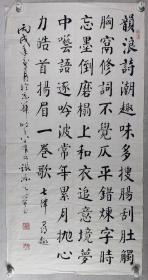 韻浪詩潮趣味多搜腸刮肚觸
胸窩修詞不覺仄平錯煉字時
忘墨倒磨榻上和衣追意境夢
中囈語逐吟波常年累月拋心
力皓首揚眉一卷歌
七律
丙戌年